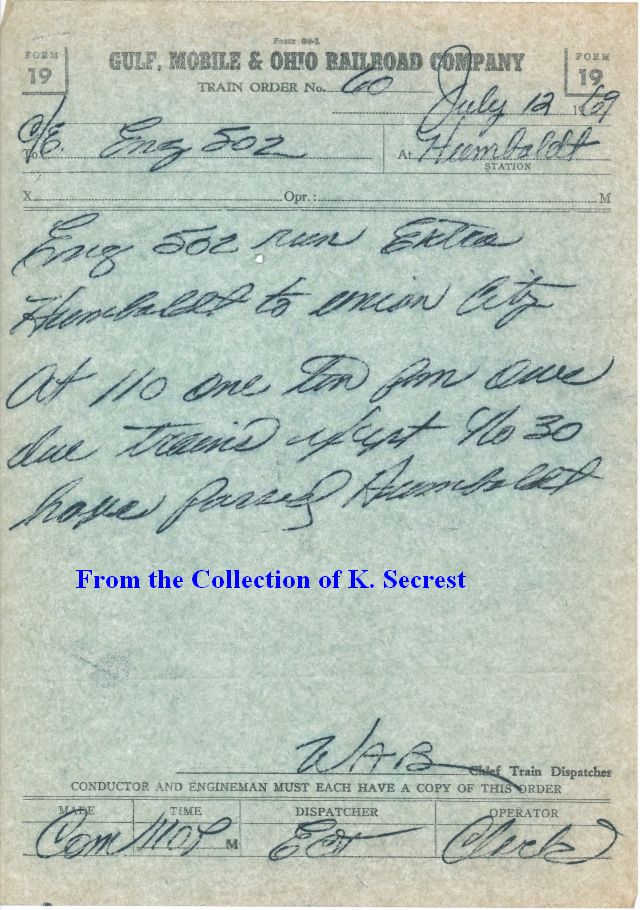 Form 89-1
FORM
19
GULF, MOBILE & OHIO RAILROAD COMPANY
FORM
19
TRAIN ORDER No. 60
July 12 1969
To C/E Eng 502
At Humboldt
STATION
X Opr.: M
Eng 502 run Extra
Humboldt to Union City
At 110 one ten pm
due trains except No 30
have passed Humboldt
From the Collection of K. Secrest
WAB Chief Train Dispatcher
CONDUCTOR AND ENGINEMAN MUST EACH HAVE A COPY OF THIS ORDER
MADE TIME DISPATCHER OPERATOR
Com M